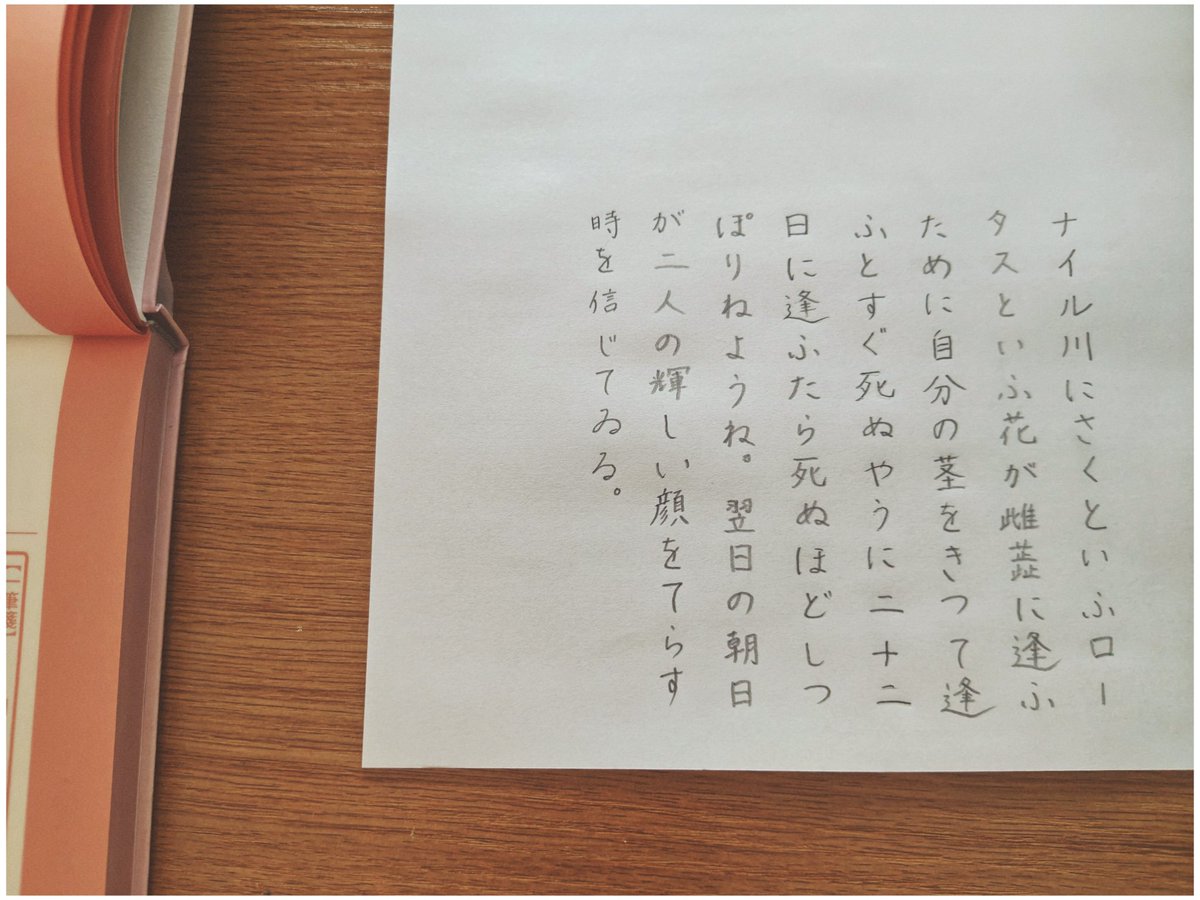 ナイル川にさくといふロー
タスといふ花が雌蕋に逢ふ
ために自分の茎をきつて逢
ふとすぐ死ぬやうに二十二
日に逢ふたら死ぬほどしつ
ぽりねようね。翌日の朝日
が二人の輝しい顔をてらす
時を信じてゐる。
【一筆箋】